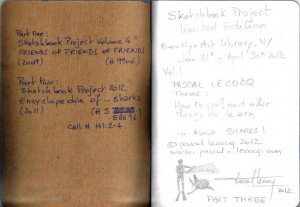 Part one:
Sketchbook Project Volume 4
FRIENDS OF FRIENDS OF FRIEND)
(2009) (# 9906)
Part two:
Sketchbook Project 2012
Encyclopedia of .. sharks
(2011) (# S
58696
Call # 141.2-4
Sketchbook Project
Limited Edition
Brooklyn Art Library, NY
Jan 31st - April 30th 2012
Vol. 1
PASCAL LECOCQ
THEME:
How to spell and other
things to learn
... About SHARKS!
© pascal lecocq 2012
www.pascal-lecocq.com
2012
PART THREE